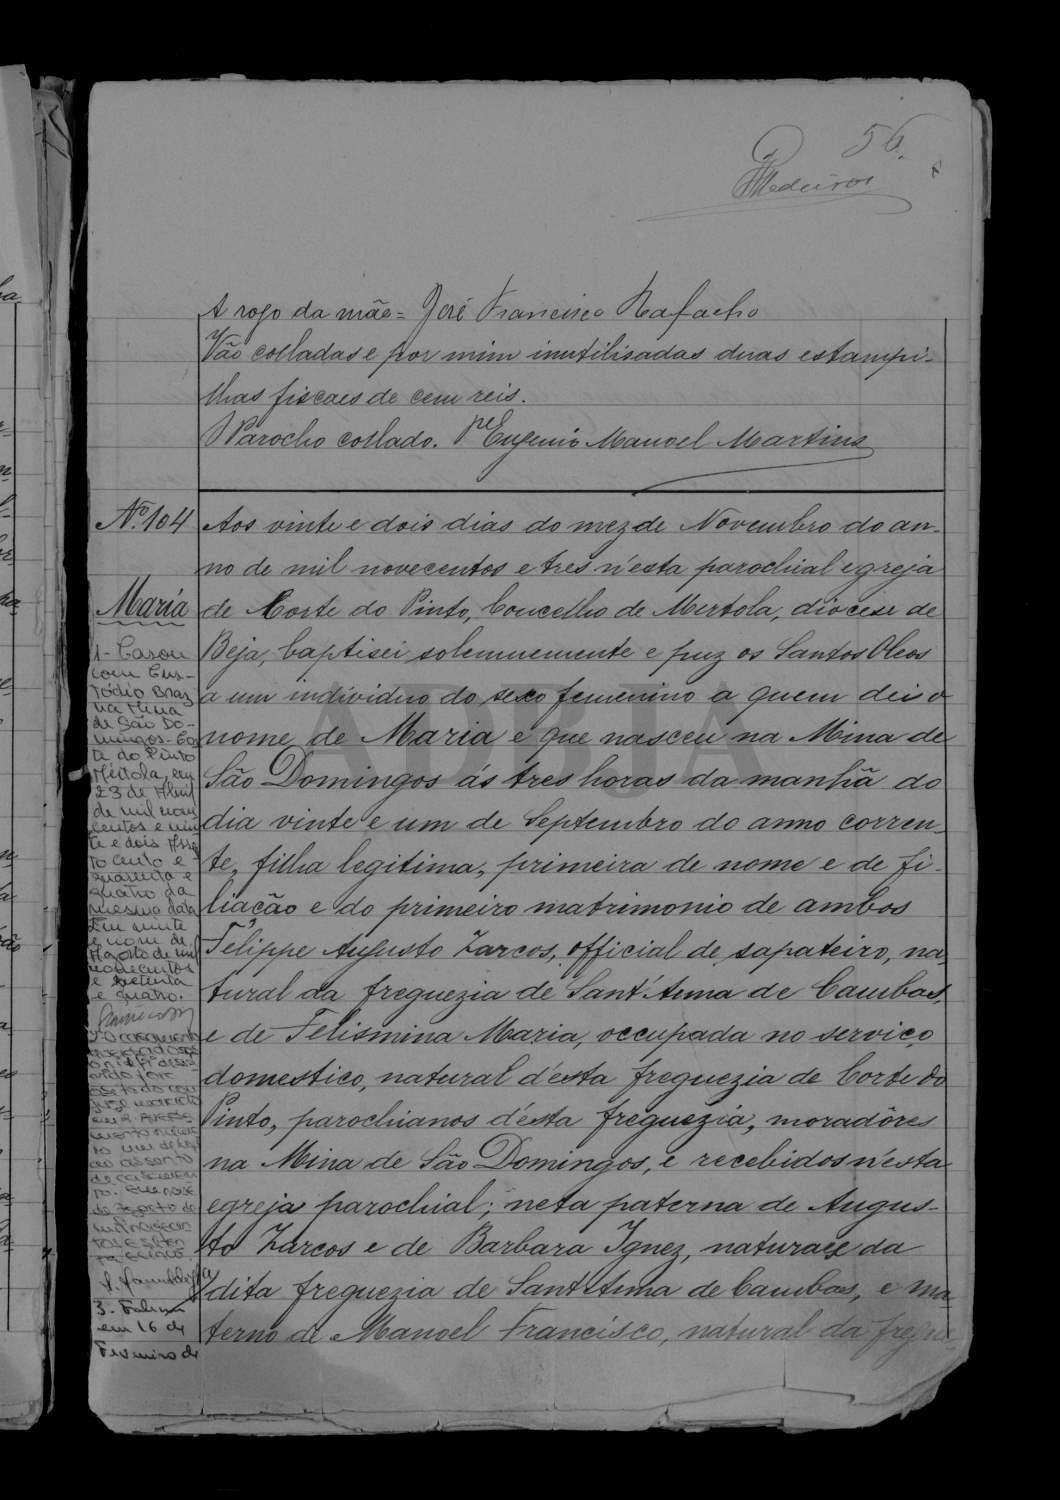 56.
Medeiros
A rogo da mãe = José Francisco Rafacho
Vão colladas e por mim inutilisadas duas estampi-
lhas fiscaes de cem reis.
O Parocho collado. Pe Eugenio Manoel Martins
Nº 104
Aos vinte e dois dias do mez de Novembro do an-
no de mil novecentos e tres n'esta parochial egreja
Maria
de Corte do Pinto, Concelho de Mertola, diocese de
Beja, baptisei solemnemente e puz os Santos Oleos
a um individuo do sexo femenino a quem dei o
nome de Maria e que nasceu na Mina de
São Domingos ás tres horas da manhã do
dia vinte e um de Septembro do anno corren-
te, filha legitima, primeira de nome e de fi-
liação e do primeiro matrimonio de ambos
Felippe Augusto Zarcos, official de sapateiro, na-
tural da freguezia de Sant'Anna de Cambas,
e de Felismina Maria, occupada no serviço
domestico, natural d'esta freguezia de Corte do
Pinto, parochianos d'esta freguezia, moradôres
na Mina de São Domingos, e recebidos n'esta
egreja parochial; neta paterna de Augus-
to Zarcos e de Barbara Ignez, naturaes da
dita freguezia de Sant'Anna de Cambas, e ma-
terno de Manoel Francisco, natural da fregue
1- Casou
com Cus-
tódio Braz
na Mina
de São Do-
mingos - Cor
te do Pinto
Mértola, em
23 de Abril
de mil nove
centos e vin
te e dois Asse
to cento e
quarenta e
quatro da
mesma data
Em vinte
e nove de
Agosto de mil
novecentos
e setenta
e quatro.
2- O casamento
de Agosto de
3- Faleceu
em 16 de
Fevereiro de
ADBJA